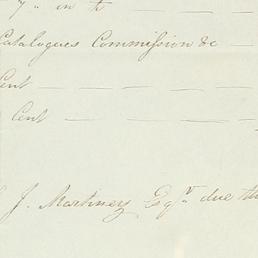 7 " in
Catalogues Commission &c
Cent
Cent
J. Martiney Esqr due